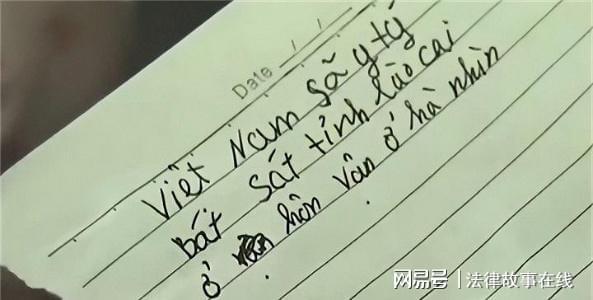 Date / /
Việt Nam sã y tý
bát sát tỉnh lào cai
ở hôn vân ở hà nhìn
网易号 | 法律故事在线